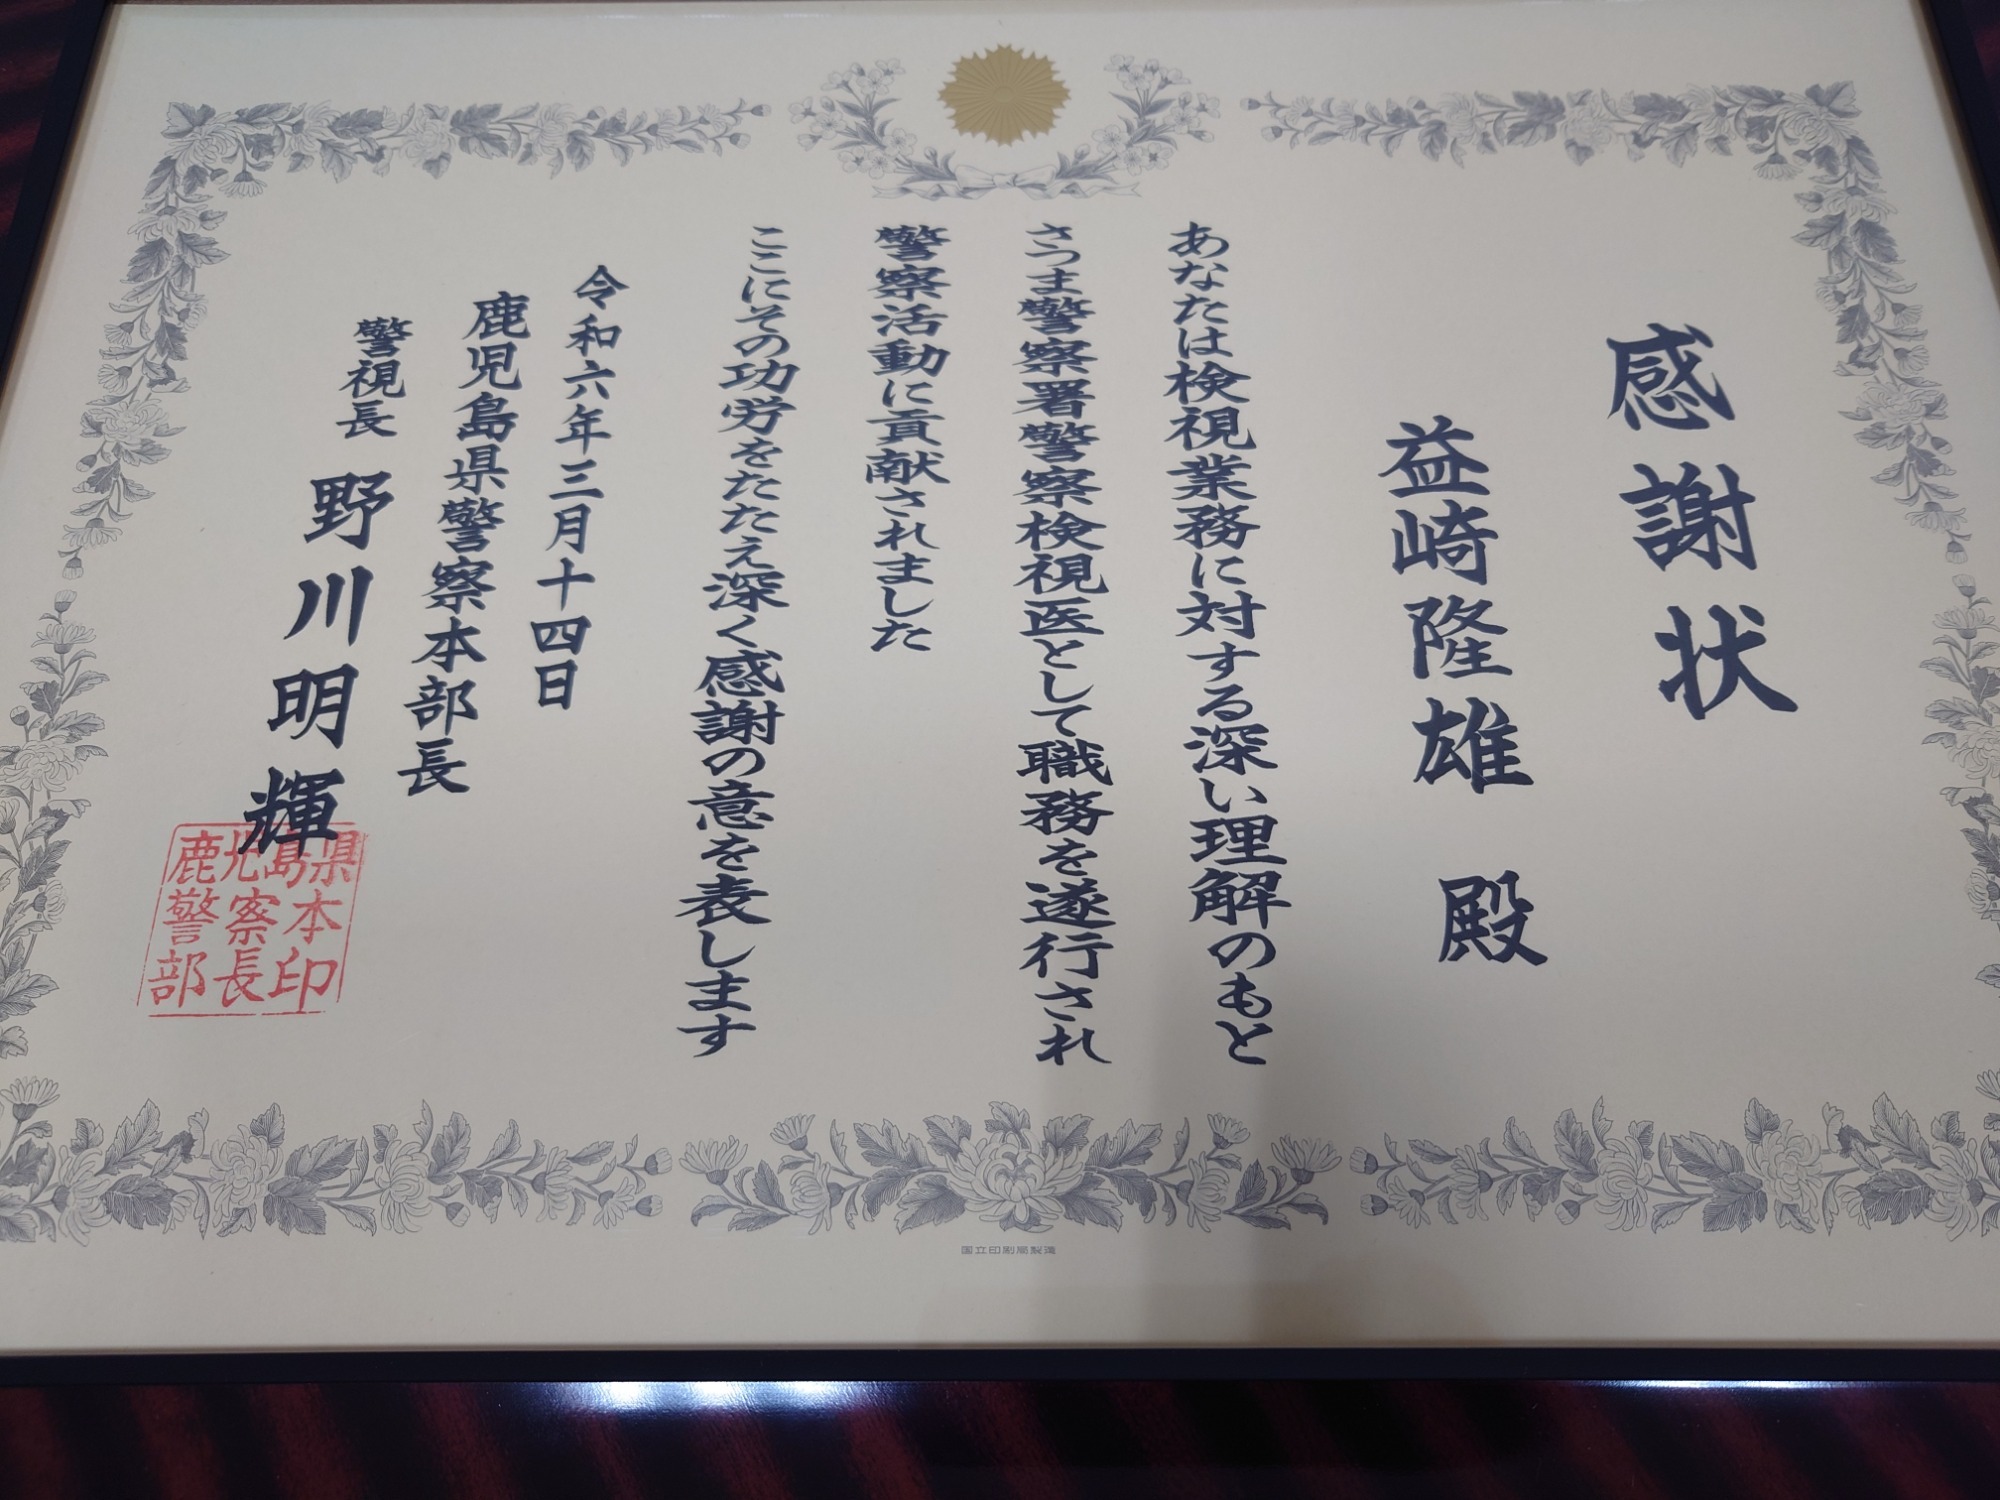 感謝状
益崎隆雄 殿
あなたは検視業務に対する深い理解のもと
さつま警察署警察検視医として職務を遂行され
警察活動に貢献されました
ここにその功労をたたえ深く感謝の意を表します
令和六年三月十四日
鹿児島県警察本部長
警視長 野川明輝
鹿児島県
警察本
部長印
国立印刷局製造